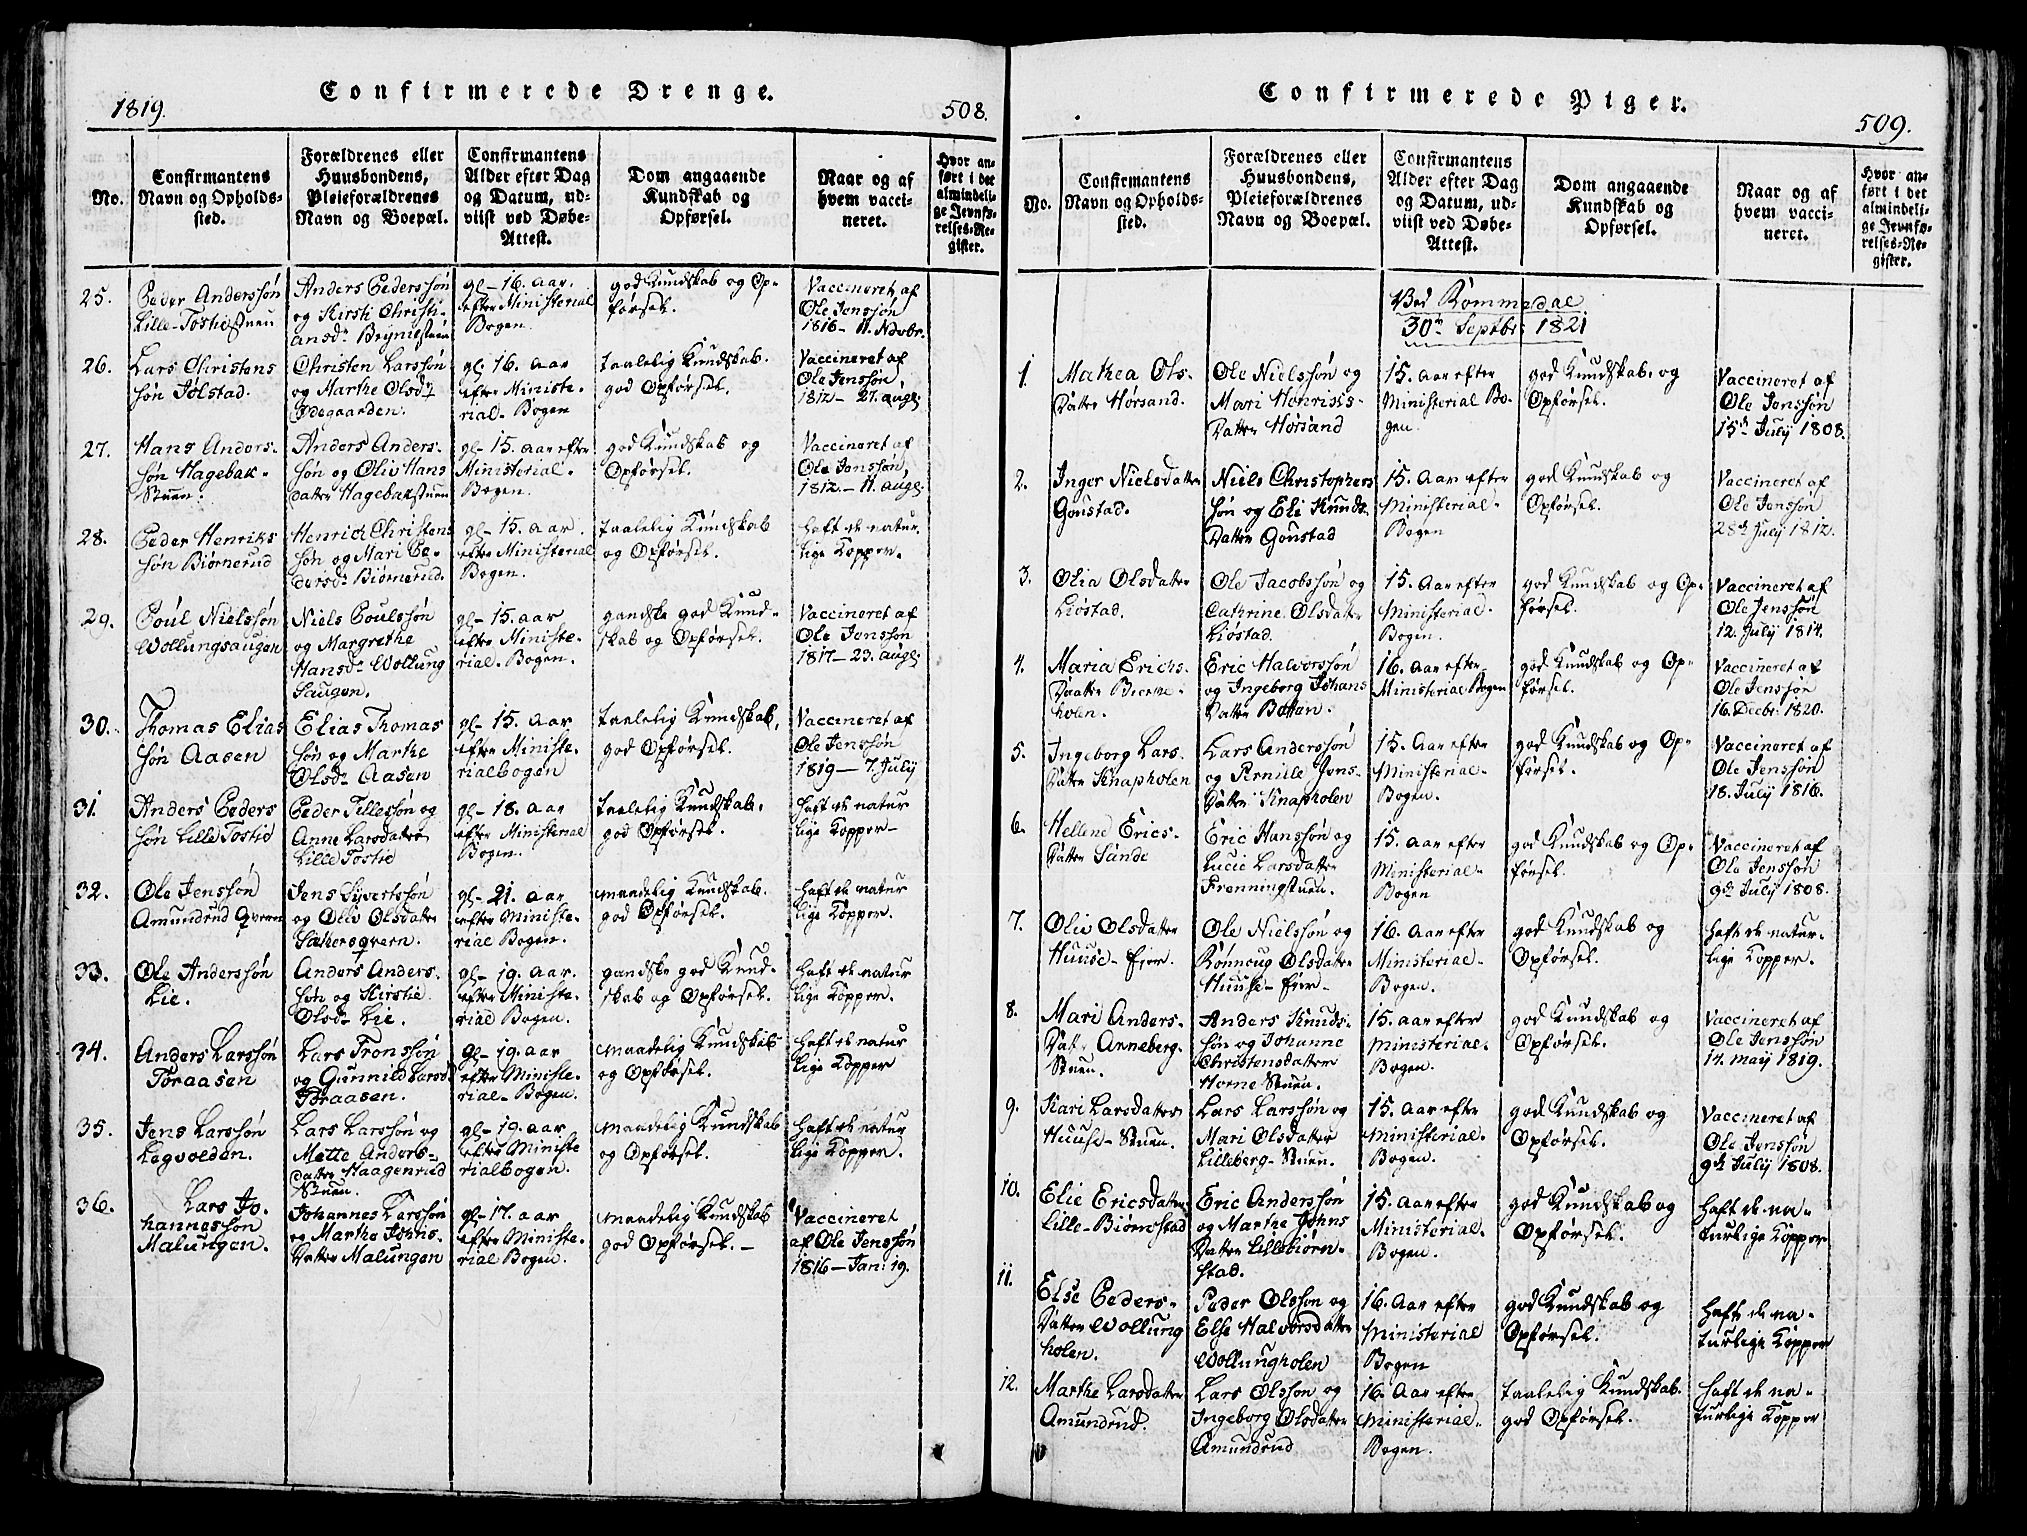 1819.
Confirmerede Drenge.
508.
No.
Confirmantens
Navn og Opholds-
sted.
Forældrenes eller
Huusbondens,
Pleieforældrenes
Navn og Boepæl.
Confirmantens
Alder efter Dag
og Datum, ud-
viist ved Døbe-
Attest.
Dom angaaende
Kundskab og
Opførsel.
Naar og af
hvem vacci-
neret.
Hvor an-
ført i det
almindeli-
ge Jevnfø-
relses-Re-
gister.
25.
Peder Anderssøn
Lille-Tostistuen
Anders Pederssøn
og Kirsti Christi-
ansdr
gl- 16. aar.
efter Ministerial
Bogen.
god Kundskab og Op-
førsel.
Vaccineret af
Ole Jenssøn
1816- 11. Novbr.
26.
Lars Christens
søn Jølstad.
Christen Larssøn
og Marthe Olsdr
Ødegaarden.
gl. 16. aar
efter Ministe-
rial-Bogen
taalelig Kundskab.
god Opførsel.
Vaccineret af
Ole Jenssøn,
1812- 27. aug:
27.
Hans Anders-
søn Hagebak-
Stuen.
Anders Anders-
søn og Oliv Hans
datter Hagebakstuen
gl- 15. aar efter
Ministerial-
Bogen.
god Kundskab og
Opførsel.
Vaccineret af
Ole Jenssøn,
1812- 11. aug:
28.
Peder Henriks
søn Biørnerud
Henrich Christens
søn og Mari Pe-
dersdr Biørnerud.
gl- 15. aar.
efter Ministerial
Bogen.
taalelig Kundskab
og Opførsel.
haft de natur
lige Kopper.
29.
Poul Nielssøn
Wollungsaugen
Niels Poulssøn
og Margrethe
Hansdr Wollung
Saugen.
gl- 15. aar
efter Ministe-
rial-Bogen.
gandske god Kund-
skab og Opførsel.
Vaccineret af
Ole Jenssøn
1817- 23. aug:
30.
Thomas Elias
søn Aasen
Elias Thomas
søn og Marthe
Olsdr Aasen
gl- 15. aar
efter Ministe-
rialbogen
taalelig Kundskab,
god Opførsel.
Vaccineret af
Ole Jenssøn
1819- 7. July
31.
Anders Peders
søn Lille Tostid
Peder Tillessøn og
Anne Larsdatter
Lille Tostid
gl- 18. aar
efter Ministerial
Bogen.
taalelig Kundskab.
god Opførsel.
haft de natur
lige Kopper-
32.
Ole Jenssøn
Amundrud Qvern
Jens Syvertssøn
og Oliv Olsdatter
Sætersqvern.
gl- 21. aar
efter Ministe-
rial Bogen.
maadelig Kundskab.
god Opførsel.
haft de natur
lige Kopper.
33.
Ole Anderssøn
Lie.
Anders Anders-
søn og Kirstie
Olsdr Lie.
gl- 19. aar.
efter Ministe-
rial Bogen.
gandske god Kund-
skab og Opførsel.
haft de natur
lige Kopper.
34.
Anders Larssøn
Toraasen
Lars Tronssøn
og Gunnild Larsdr
Toraasen.
gl- 19. aar
efter Ministe-
rial-Bogen.
maadelig Kundskab
og Opførsel.
haft de natur
lige Kopper
35.
Jens Larssøn
Legvolden.
Lars Larssøn og
Mette Anders-
datter Haagenrud
Stuen.
gl- 19. aar
efter Ministe
rialbogen.
maadelig Kundskab
og Opførsel.
haft de natur
lige Kopper.
36.
Lars Jo.
hannessøn
Malungen.
Johannes Larssøn
og Marthe Johns-
datter Malungen
gl- 17. aar
efter Ministe-
rial Bogen.
maadelig Kundskab
god Opførsel.-
Vaccineret
af Ole Jenssøn
1816- Jan: 19.
Confirmerede Piger.
509.
No.
Confirmantens
Navn og Opholds-
sted.
Forældrenes eller
Huusbondens,
Pleieforældrenes
Navn og Boepæl.
Confirmantens
Alder efter Dag
og Datum, ud-
viist ved Døbe-
Attest.
Dom angaaende
Kundskab og
Opførsel.
Naar og af
hvem vacci-
neret.
Hvor an-
ført i det
almindeli-
ge Jevnfø-
relses-Re-
gister.
Ved Rommedal
30te Septbr: 1821
1.
Mathea Ols-
Datter Horsand.
Ole Nielssøn og
Mari Henriks-
Datter Horsand
15. Aar efter
Ministerial Bo-
gen.
god Kundskab. og
Opførsel.
Vaccineret af
Ole Jenssøn
15de July 1808.
2.
Inger Nielsdatter
Gonstad.
Niels Christophers
søn og Eli Knuds
Datter Gonstad
15. Aar efter
Ministerial-
Bogen
god Kundskab og
Opførsel.
Vaccineret af
Ole Jenssøn
28de July 1812.
3.
Olia Olsdatter
Liøstad.
Ole Jacobssøn og
Cathrine Olsdatter
Liøstad.
15. Aar efter
Ministerial-
Bogen.
god Kundskab og Op-
førsel.
Vaccineret af
Ole Jenssøn
12. July 1814.
4.
Maria Erichs-
Datter
holen.
Eric Halvorssøn
og Ingeborg Johans
Datter Botten.
16. Aar efter
Ministerial Bogen
god Kundskab og Op-
førsel.
Vaccineret af
Ole Jenssøn
16. Decbr: 1820.
5.
Ingeborg Lars-
Datter Knapholen
Lars Anderssøn
og Pernille Jens-
Datter Knapholen
15. Aar efter
Ministerial-
Bogen.
god Kundskab og Op-
førsel.
Vaccineret af
Ole Jenssøn
18. July 1816.
6.
Hellene Erics-
Datter Sande
Eric Hanssøn og
Lucie Larsdatter
Frenningstuen.
15. Aar efter
Ministerial-
Bogen
god Kundskab og Op-
førsel.
Vaccineret af
Ole Jenssøn
9de July 1808.
7.
Oliv Olsdatter
Huuse-Eier.
Ole Nielssøn og
Rønnoug Olsdatter
Huuse-Eier-
16. Aar efter
Ministerial-
Bogen.
god Kundskab og
Opførsel.
haft de natur-
lige Kopper.
8.
Mari Anders-
Dat- Anneberg-
Stuen.
Anders Knuds-
søn og Johanne
Christensdatter
Horne Stuen.
15. aar efter
Ministerial-
Bogen.
god Kundskab og
Opførsel.
Vaccineret af
Ole Jenssøn
14. maij 1819.
9.
Kari Larsdatter
Huuse-Stuen.
Lars Larssøn og
Mari Olsdatter
Lilleberg-Stuen.
15. Aar efter
Ministerial-
Bogen.
god Kundskab og
Opførsel.
Vaccineret af
Ole Jenssøn
9de July 1808.
10.
Elie Ericsdatter
Lille-Biørnstad
Eric Anderssøn
og Marthe Johns
Datter Lillebiørn-
stad.
15. Aar efter
Ministerial-
Bogen.
god Kundskab og
Opførsel.
haft de na-
turlige Kopper
11.
Else Peders-
Datter Wollung
holen.
Peder Olssøn og
Else Halvorsdatter
Wollungholen
16. Aar efter
Ministerial
Bogen
god Kundskab og
Opførsel.
haft de na-
turlige Kopper
12.
Marthe Larsdatter
Amundrud.
Lars Olssøn og
Ingeborg Olsdatter
Amundrud
16. Aar efter
Ministerial-
Bogen.
taalelig Kundskab.
god Opførsel.
haft de na-
turlige Kopper